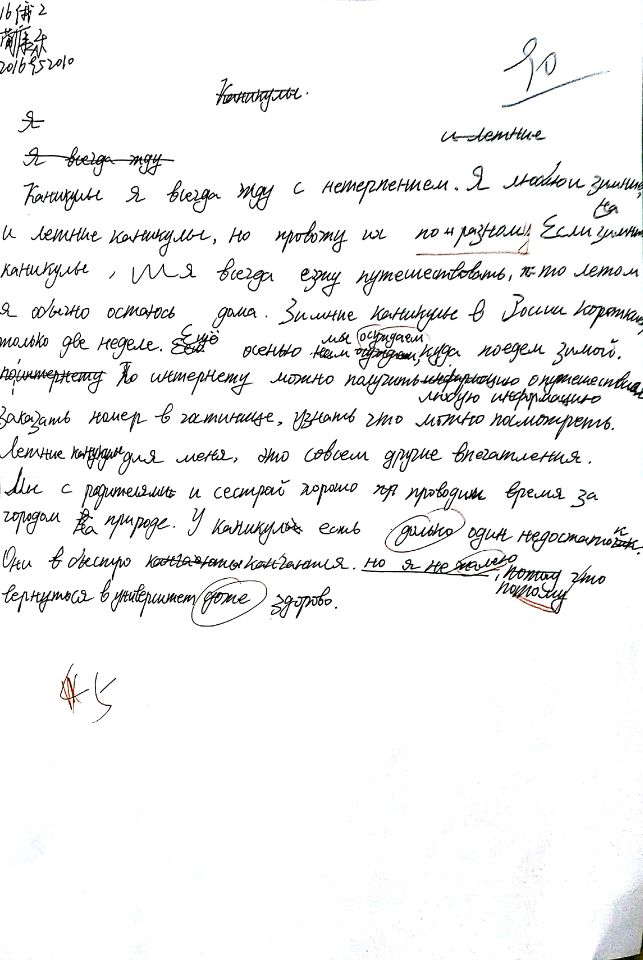 16俄2
2016952010
90
Каникулы.
Я
и летние
Я всегда жду
Каникулы я всегда жду с нетерпением. Я люблю и зимние
на
и летние каникулы, но провожу их по разному Если зимние
каникулы, я всегда езжу путешествовать, то летом
я обычно остаюсь дома. Зимние каникулы в Росии короткие,
только две неделе. Ещё осенью мы осуждаем, куда поедем зимой.
поинтернету По интернету можно получить информацию о путешествиях
любую информацию
заказать номер в гастинице, узнать что можно посмотреть.
Летние каникулы для меня, это совсем другие впечатления.
Мы с родителями и сестрой хорошо проводим время за
городом На природе. У каникул есть долько один недостаток
Они в быстро канчаются. но я не жалею, потому что
потому
вернуться в университет доже здорово.
5